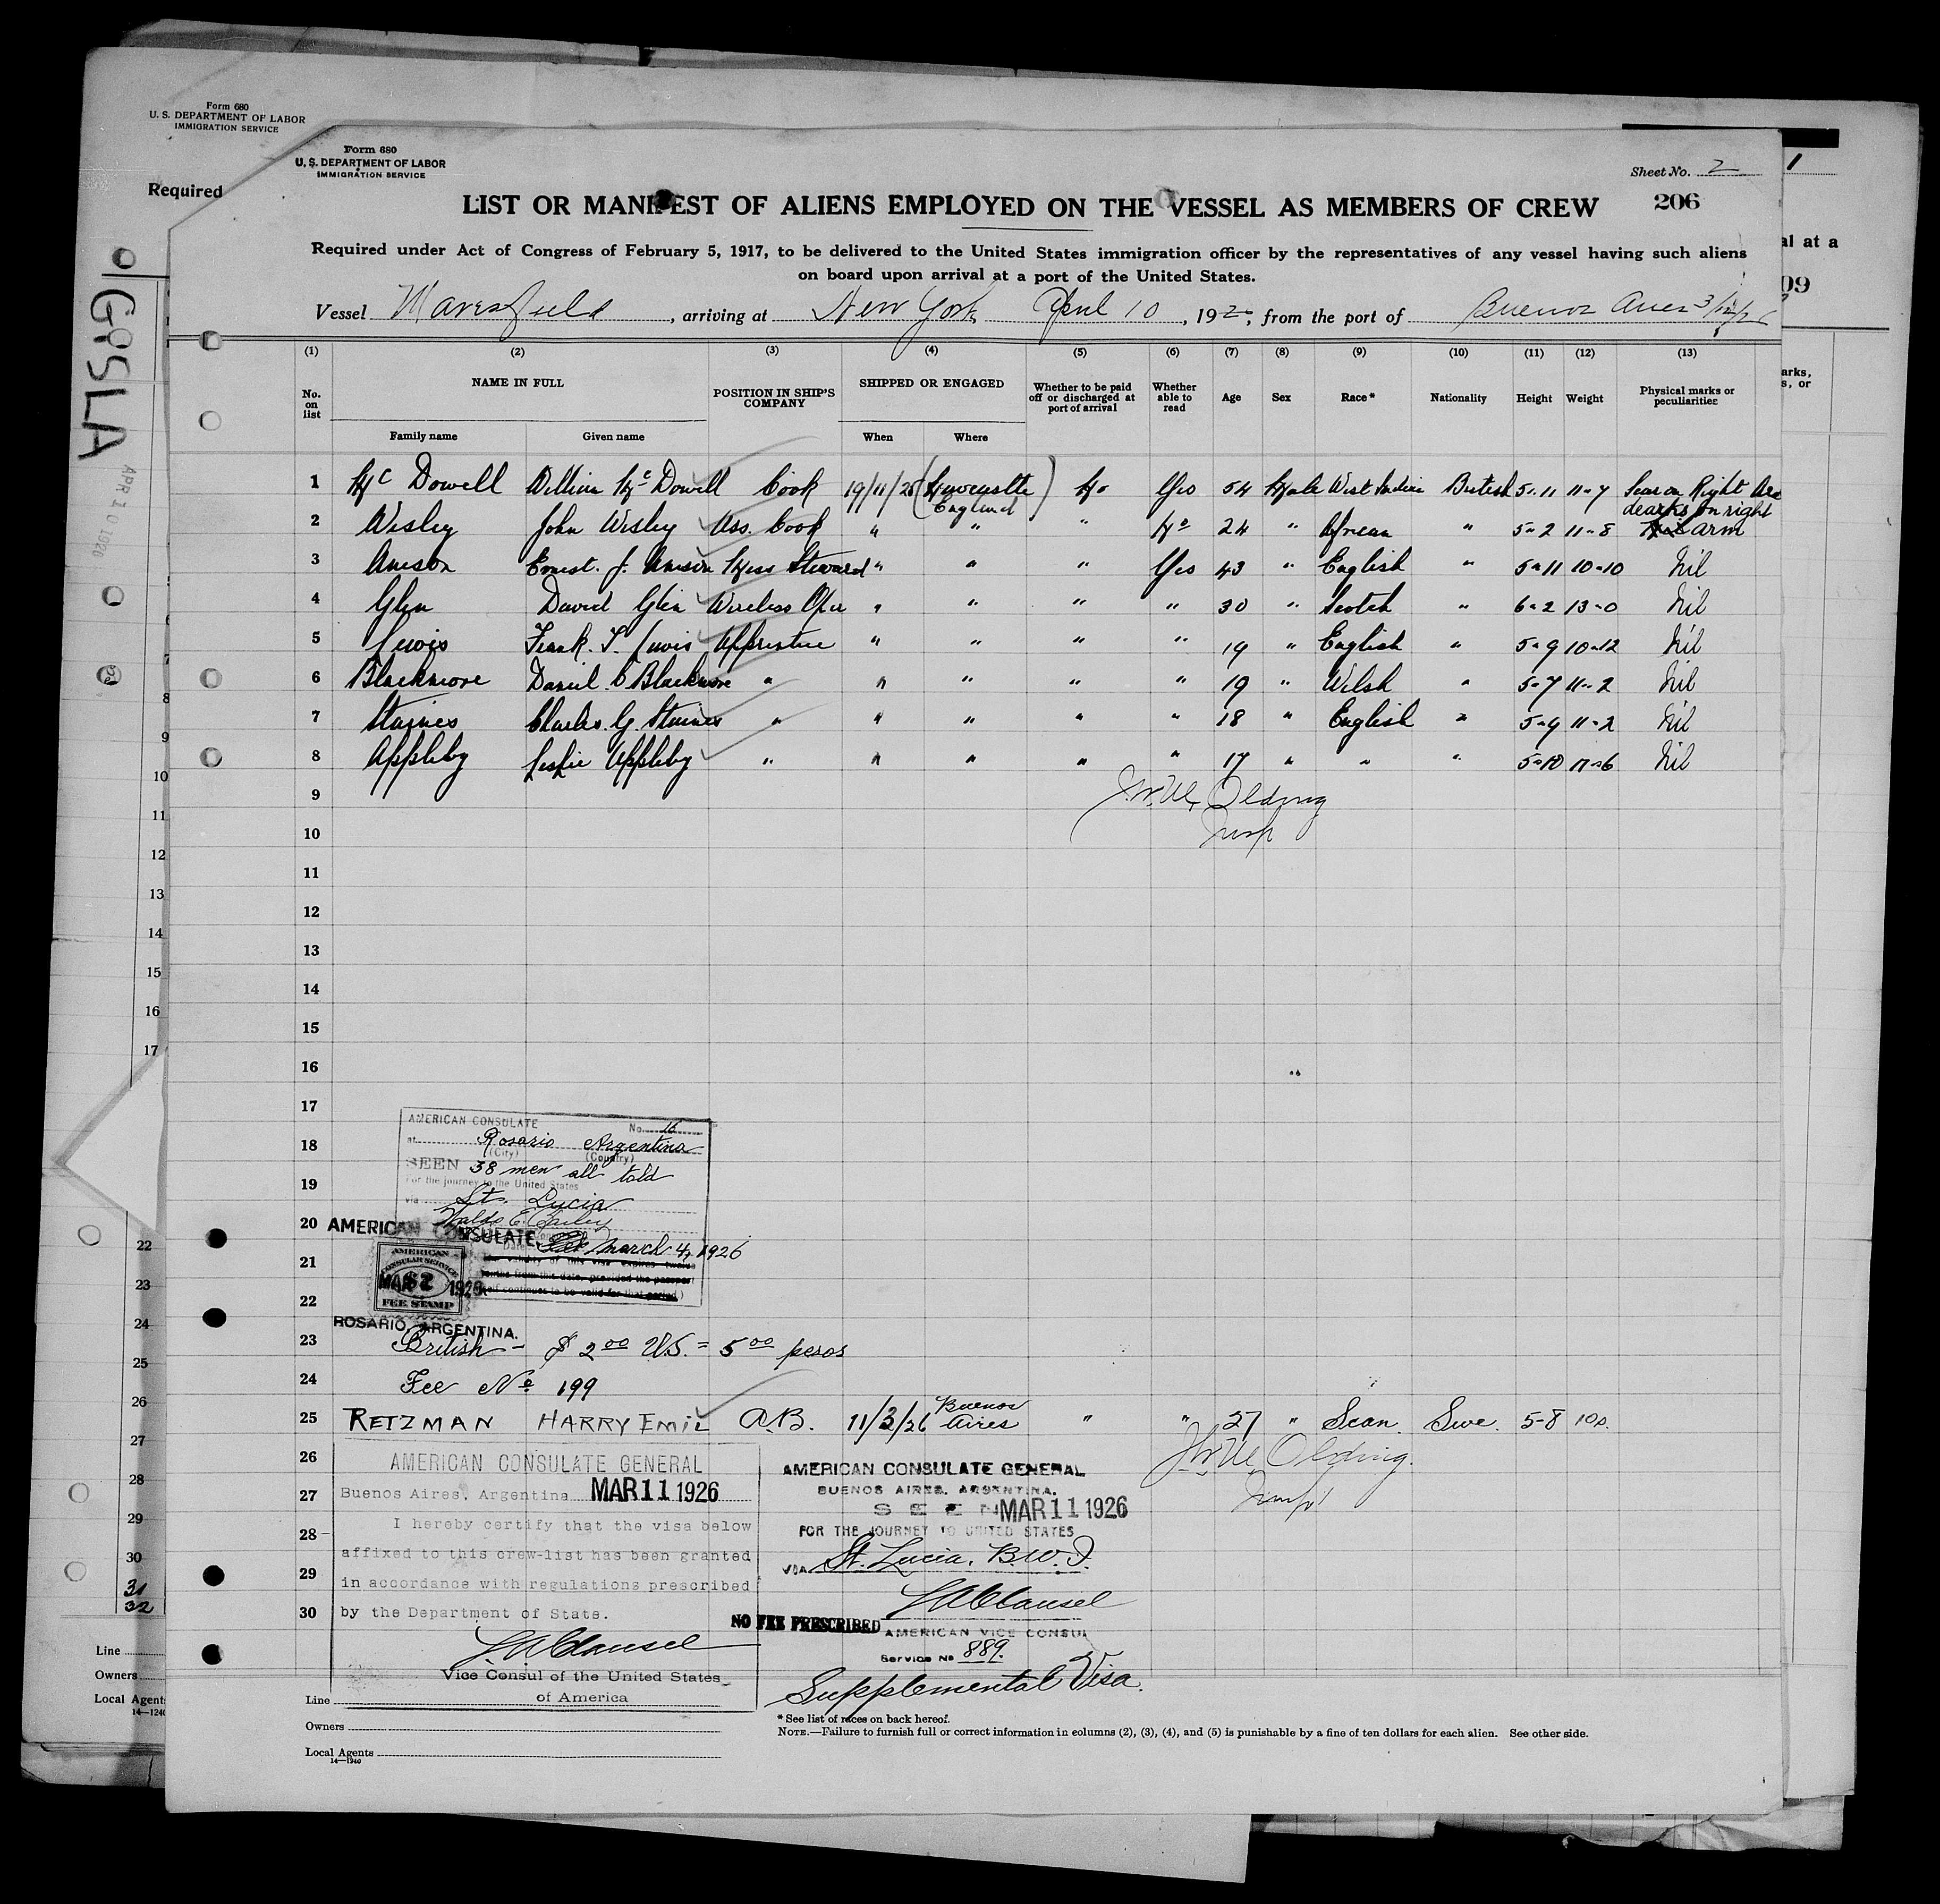 Form 680
U. S. DEPARTMENT OF LABOR
IMMIGRATION SERVICE
Required
Form 680
U. S. DEPARTMENT OF LABOR
IMMIGRATION SERVICE
Sheet No. 2
1
206
LIST OR MANIFEST OF ALIENS EMPLOYED ON THE VESSEL AS MEMBERS OF CREW
Required under Act of Congress of February 5, 1917, to be delivered to the United States immigration officer by the representatives of any vessel having such aliens
on board upon arrival at a port of the United States.
al at a
09
Vessel Maresfield, arriving at New York April 10, 192, from the port of Buenos Aires 3/12/26
GOSLA
APR 10 1926
(1) (2) (3) (4) (5) (6) (7) (8) (9) (10) (11) (12) (13)
No. on list
NAME IN FULL
Family name Given name
POSITION IN SHIP'S COMPANY
SHIPPED OR ENGAGED
When Where
Whether to be paid off or discharged at port of arrival
Whether able to read
Age Sex Race* Nationality Height Weight
Physical marks or peculiarities
1 Mc Dowell William Mc Dowell Cook 19/11/25 (Newcastle England) No Yes 54 Male West Indian British 5-11 11-7 Scar on Right Arm
2 Wesley John Wesley Ass. Cook " " " No 24 " African " 5-2 11-8 on right arm
3 Anison Ernest. J. Anison Mess Steward " " " Yes 43 " English " 5-11 10-10 Nil
4 Glen David Glen Wireless Oper " " " " 30 " Scotch " 6-2 13-0 Nil
5 Lewis Frank. T. Lewis Apprentice " " " " 19 " English " 5-9 10-12 Nil
6 Blackmore Daniel. C Blackmore " " " " " 19 " Welsh " 5-7 11-2 Nil
7 Staines Charles. G. Staines " " " " " 18 " English " 5-9 11-2 Nil
8 Appleby Leslie Appleby " " " " " 17 " " " 5-10 11-6 Nil
9 Olding
10 Insp
11
12
13
14
15
16
17
AMERICAN CONSULATE No. 16
at Rosario Argentina
(City) (Country)
18
SEEN 38 men all told
For the journey to the United States
19
via St. Lucia
20
AMERICAN CONSULATE
March 4, 1926
21
AMERICAN CONSULAR SERVICE
$2
FEE STAMP
MAR 1926
22
ROSARIO, ARGENTINA.
23 British - $ 2 00 U.S. = 5 00 pesos
24 Fee No 199
25 RETZMAN HARRY EMIL A.B. 11/3/26 Buenos Aires " " 27 " Scan. Swe. 5-8 10
26 Olding.
27
28
29
30
AMERICAN CONSULATE GENERAL
Buenos Aires, Argentina MAR 11 1926
I hereby certify that the visa below
affixed to this crew-list has been granted
in accordance with regulations prescribed
by the Department of State.
Vice Consul of the United States
of America
AMERICAN CONSULATE GENERAL
BUENOS AIRES, ARGENTINA.
SEEN MAR 11 1926
FOR THE JOURNEY TO UNITED STATES
VIA St. Lucia, B.W.I.
NO FEE PRESCRIBED
AMERICAN VICE CONSUL
Service No 889.
Supplemental Visa.
Line
Owners
Local Agents
14—1240
* See list of races on back hereof.
NOTE.—Failure to furnish full or correct information in columns (2), (3), (4), and (5) is punishable by a fine of ten dollars for each alien. See other side.
Line
Owners
Local Agents
14—1240